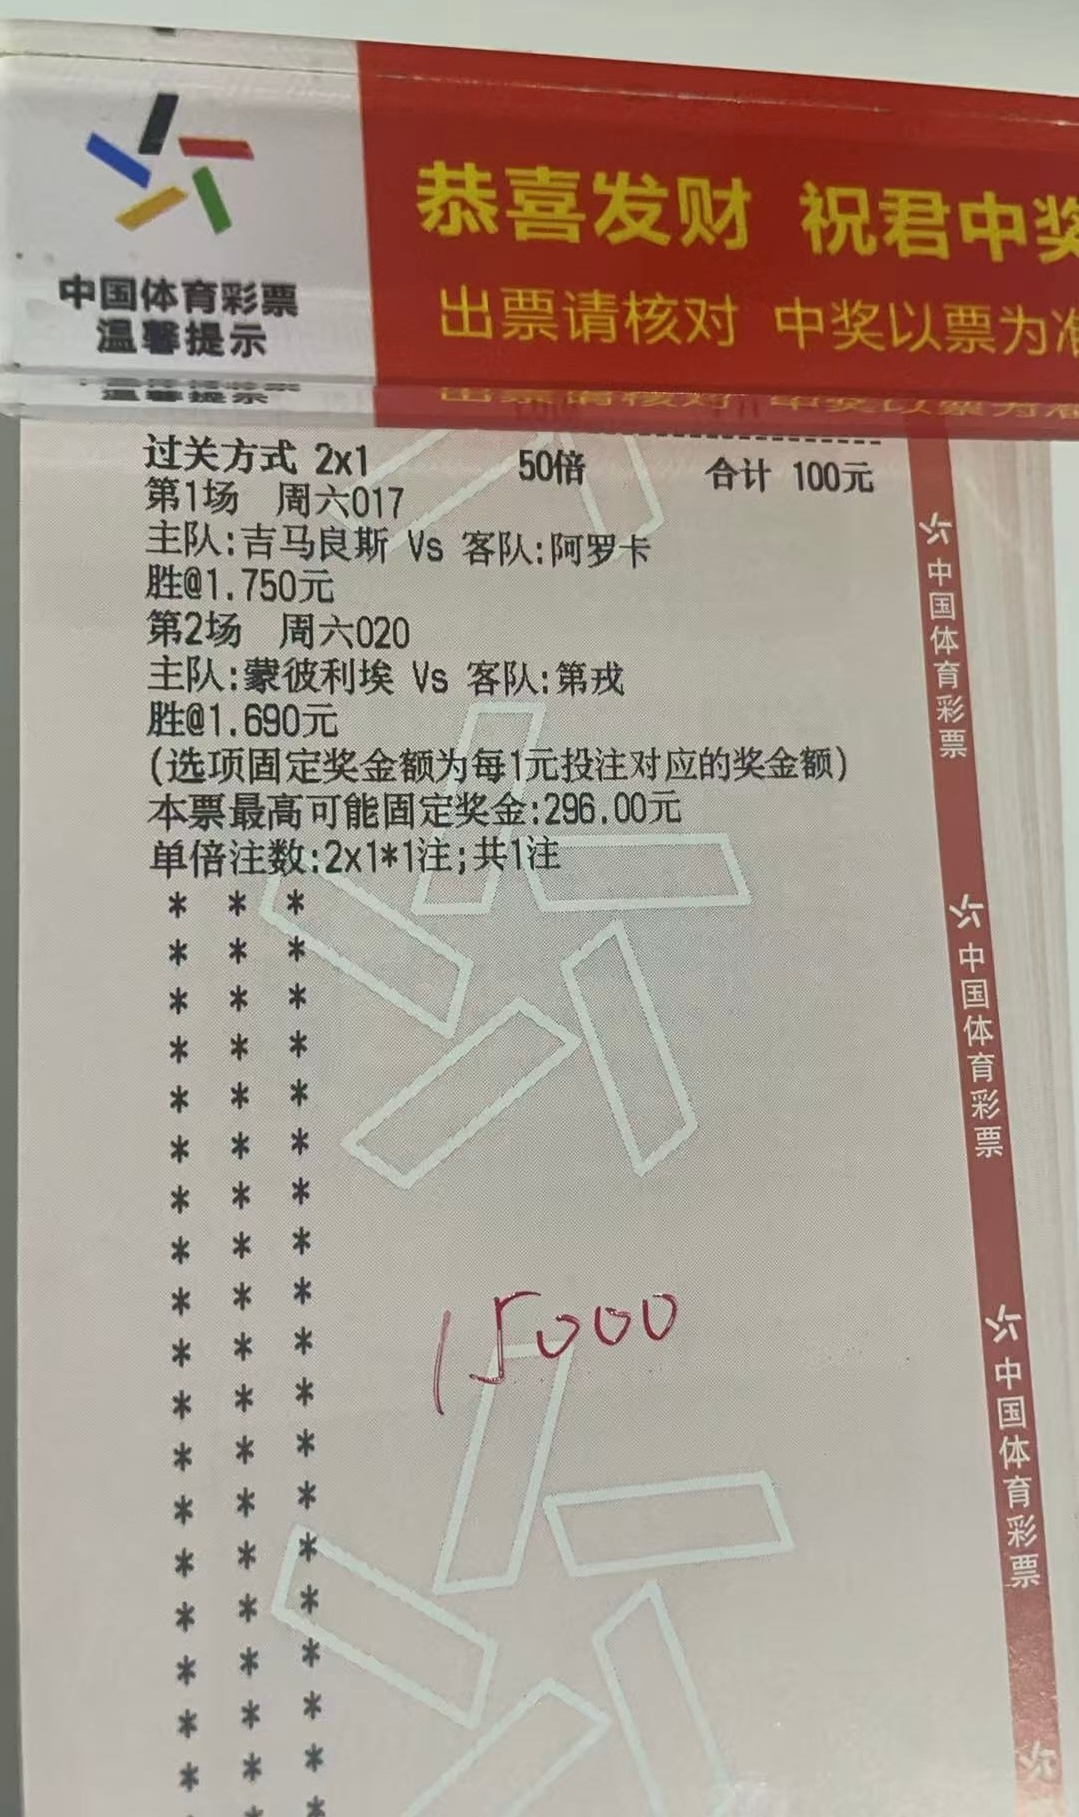 恭喜发财 祝君中奖
出票请核对 中奖以票为准
中国体育彩票
温馨提示
过关方式 2x1 50倍 合计 100元
第1场 周六017
主队:吉马良斯 Vs 客队:阿罗卡
胜@1.750元
第2场 周六020
主队:蒙彼利埃 Vs 客队:第戎
胜@1.690元
(选项固定奖金额为每1元投注对应的奖金额)
本票最高可能固定奖金:296.00元
单倍注数:2x1*1注;共1注
* * *
* * *
* * *
* * *
* * *
* * *
* * *
* * *
* * *
* * *
* * *
* * *
* * *
* * *
* * *
* * *
* * *
* * *
*
15000
中国体育彩票
中国体育彩票
中国体育彩票